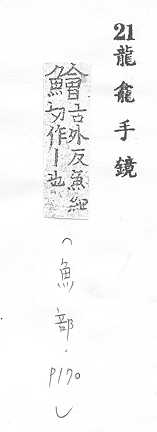 21龍龕手鏡
鱠古外反魚細
切作丨也
（魚部·P170）